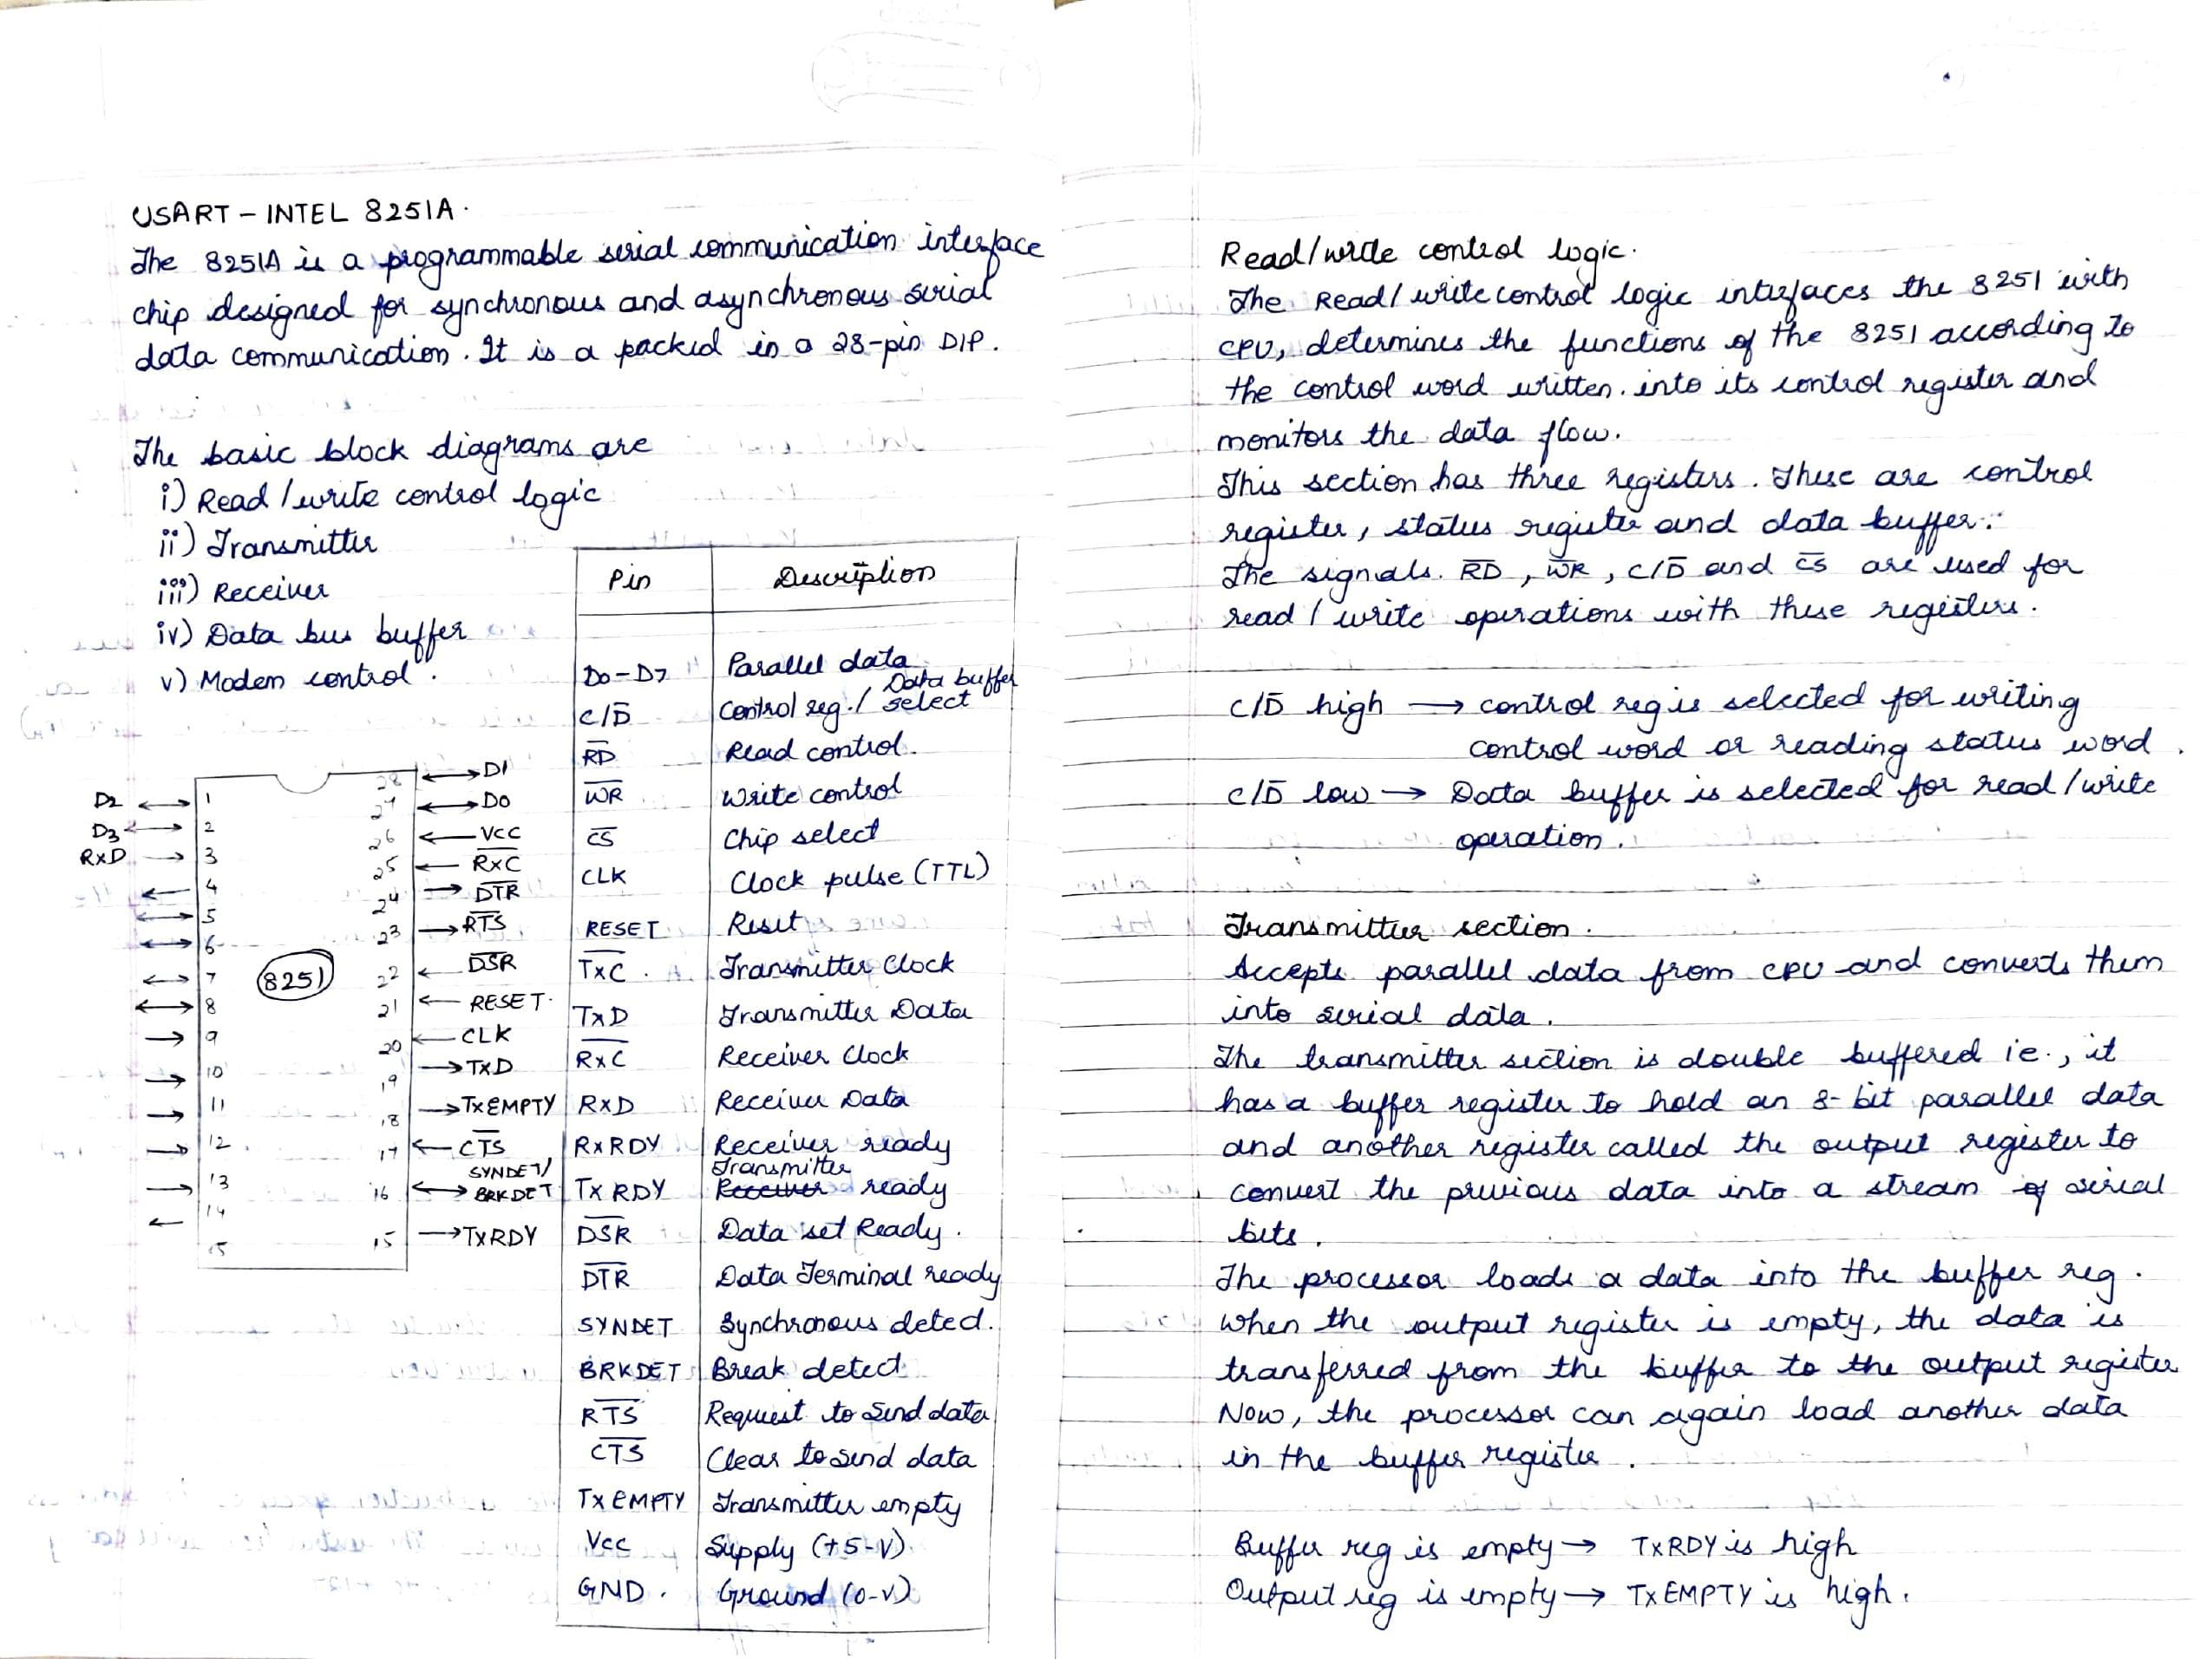 USART - INTEL 8251A.
The 8251A is a programmable serial communication interface
chip designed for synchronous and asynchronous serial
data communication. It is a packed in a 28-pin DIP.
The basic block diagrams are
i) Read / write control logic
ii) Transmitter
iii) Receiver
iv) Data bus buffer
v) Modem control.
Pin Description
D0-D7 Parallel data
C/D̅ Control reg. / Data buffer select
R̅D̅ Read control.
W̅R̅ Write control
C̅S̅ Chip select
CLK Clock pulse (TTL)
RESET Reset
T̅x̅C̅. Transmitter Clock
TxD Transmitter Data
R̅x̅C̅ Receiver Clock
RxD Receiver Data
RxRDY Receiver ready
TxRDY Transmitter ready
D̅S̅R̅ Data set Ready.
D̅T̅R̅ Data Terminal ready
SYNDET Synchronous deted.
BRKDET Break detect
R̅T̅S̅ Request to send data
C̅T̅S̅ Clear to send data
TxEMPTY Transmitter empty
Vcc Supply (+5-V)
GND. Ground (0-V)
D2 1 28 D1
D3 2 27 D0
RxD 3 26 VCC
4 25 R̅x̅C̅
5 24 D̅T̅R̅
6 23 R̅T̅S̅
7 8251 22 D̅S̅R̅
8 21 RESET.
9 20 CLK
10 19 TxD
11 18 TxEMPTY
12 17 C̅T̅S̅
13 16 SYNDET/ BRKDET
14 15 TxRDY
15
Read/write control logic.
The Read/write control logic interfaces the 8251 with
CPU, determines the functions of the 8251 according to
the control word written into its control register and
monitors the data flow.
This section has three registers. These are control
register, status register and data buffer.
The signals. R̅D̅, W̅R̅, C/D̅ and C̅S̅ are used for
read / write operations with these registers.
C/D̅ high → control reg is selected for writing
control word or reading status word.
C/D̅ low → Data buffer is selected for read / write
operation.
Transmitter section.
Accepts parallel data from CPU and converts them
into serial data.
The transmitter section is double buffered ie., it
has a buffer register to hold an 8-bit parallel data
and another register called the output register to
convert the previous data into a stream of serial
bits.
The processor loads a data into the buffer reg.
When the output register is empty, the data is
transferred from the buffer to the output register
Now, the processor can again load another data
in the buffer register.
Buffer reg is empty → TxRDY is high
Output reg is empty → TxEMPTY is high.